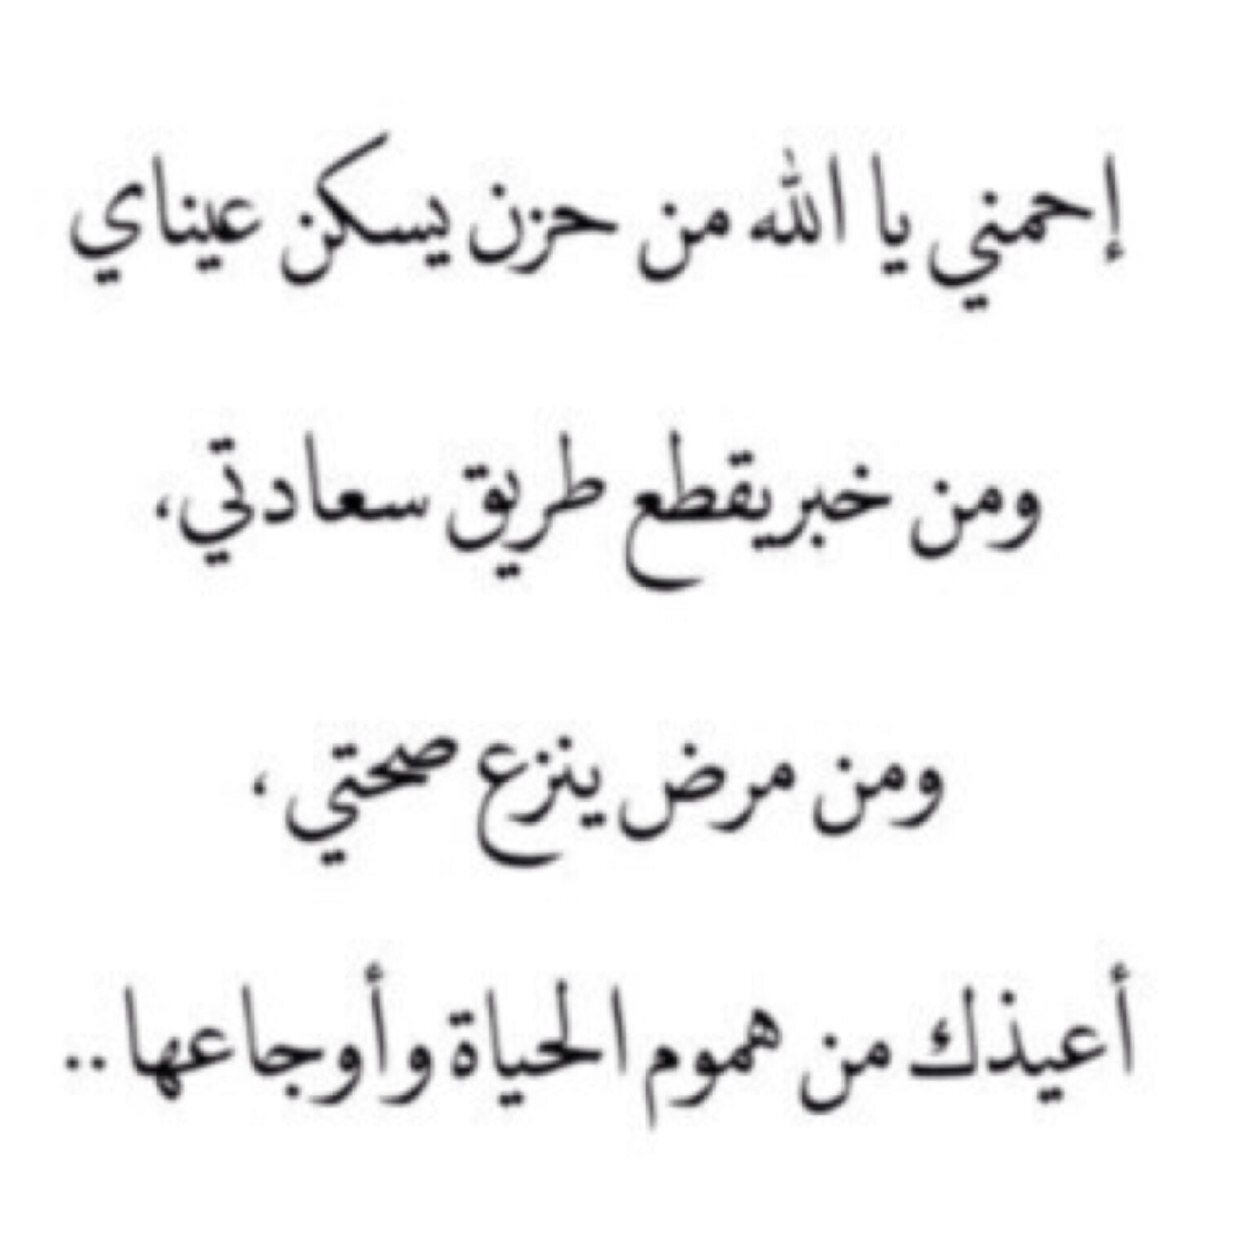 إحمني يا الله من حزن يسكن عيناي
ومن خبر يقطع طريق سعادتي،
ومن مرض ينزع صحتي ،
أعيذك من هموم الحياة وأوجاعها ..